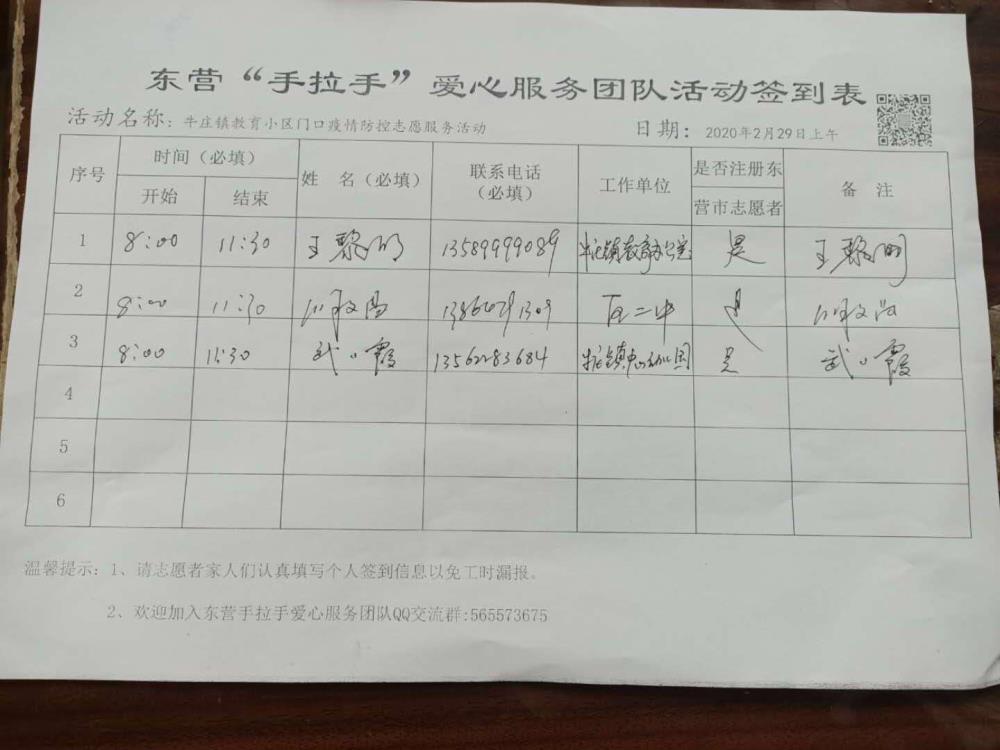 东营“手拉手”爱心服务团队活动签到表
活动名称：牛庄镇教育小区门口疫情防控志愿服务活动 日期：2020年2月29日上午
序号 时间（必填） 姓 名（必填） 联系电话（必填） 工作单位 是否注册东营市志愿者 备 注
开始 结束
1 8:00 11:30 王黎明 13589999089 牛庄镇教育办公室 是 王黎明
2 8:00 11:30 二中 是
3 8:00 11:30 武小霞 13562283684 牛庄镇中心幼儿园 是 武小霞
4
5
6
温馨提示：1、请志愿者家人们认真填写个人签到信息以免工时漏报。
2、欢迎加入东营手拉手爱心服务团队QQ交流群:565573675